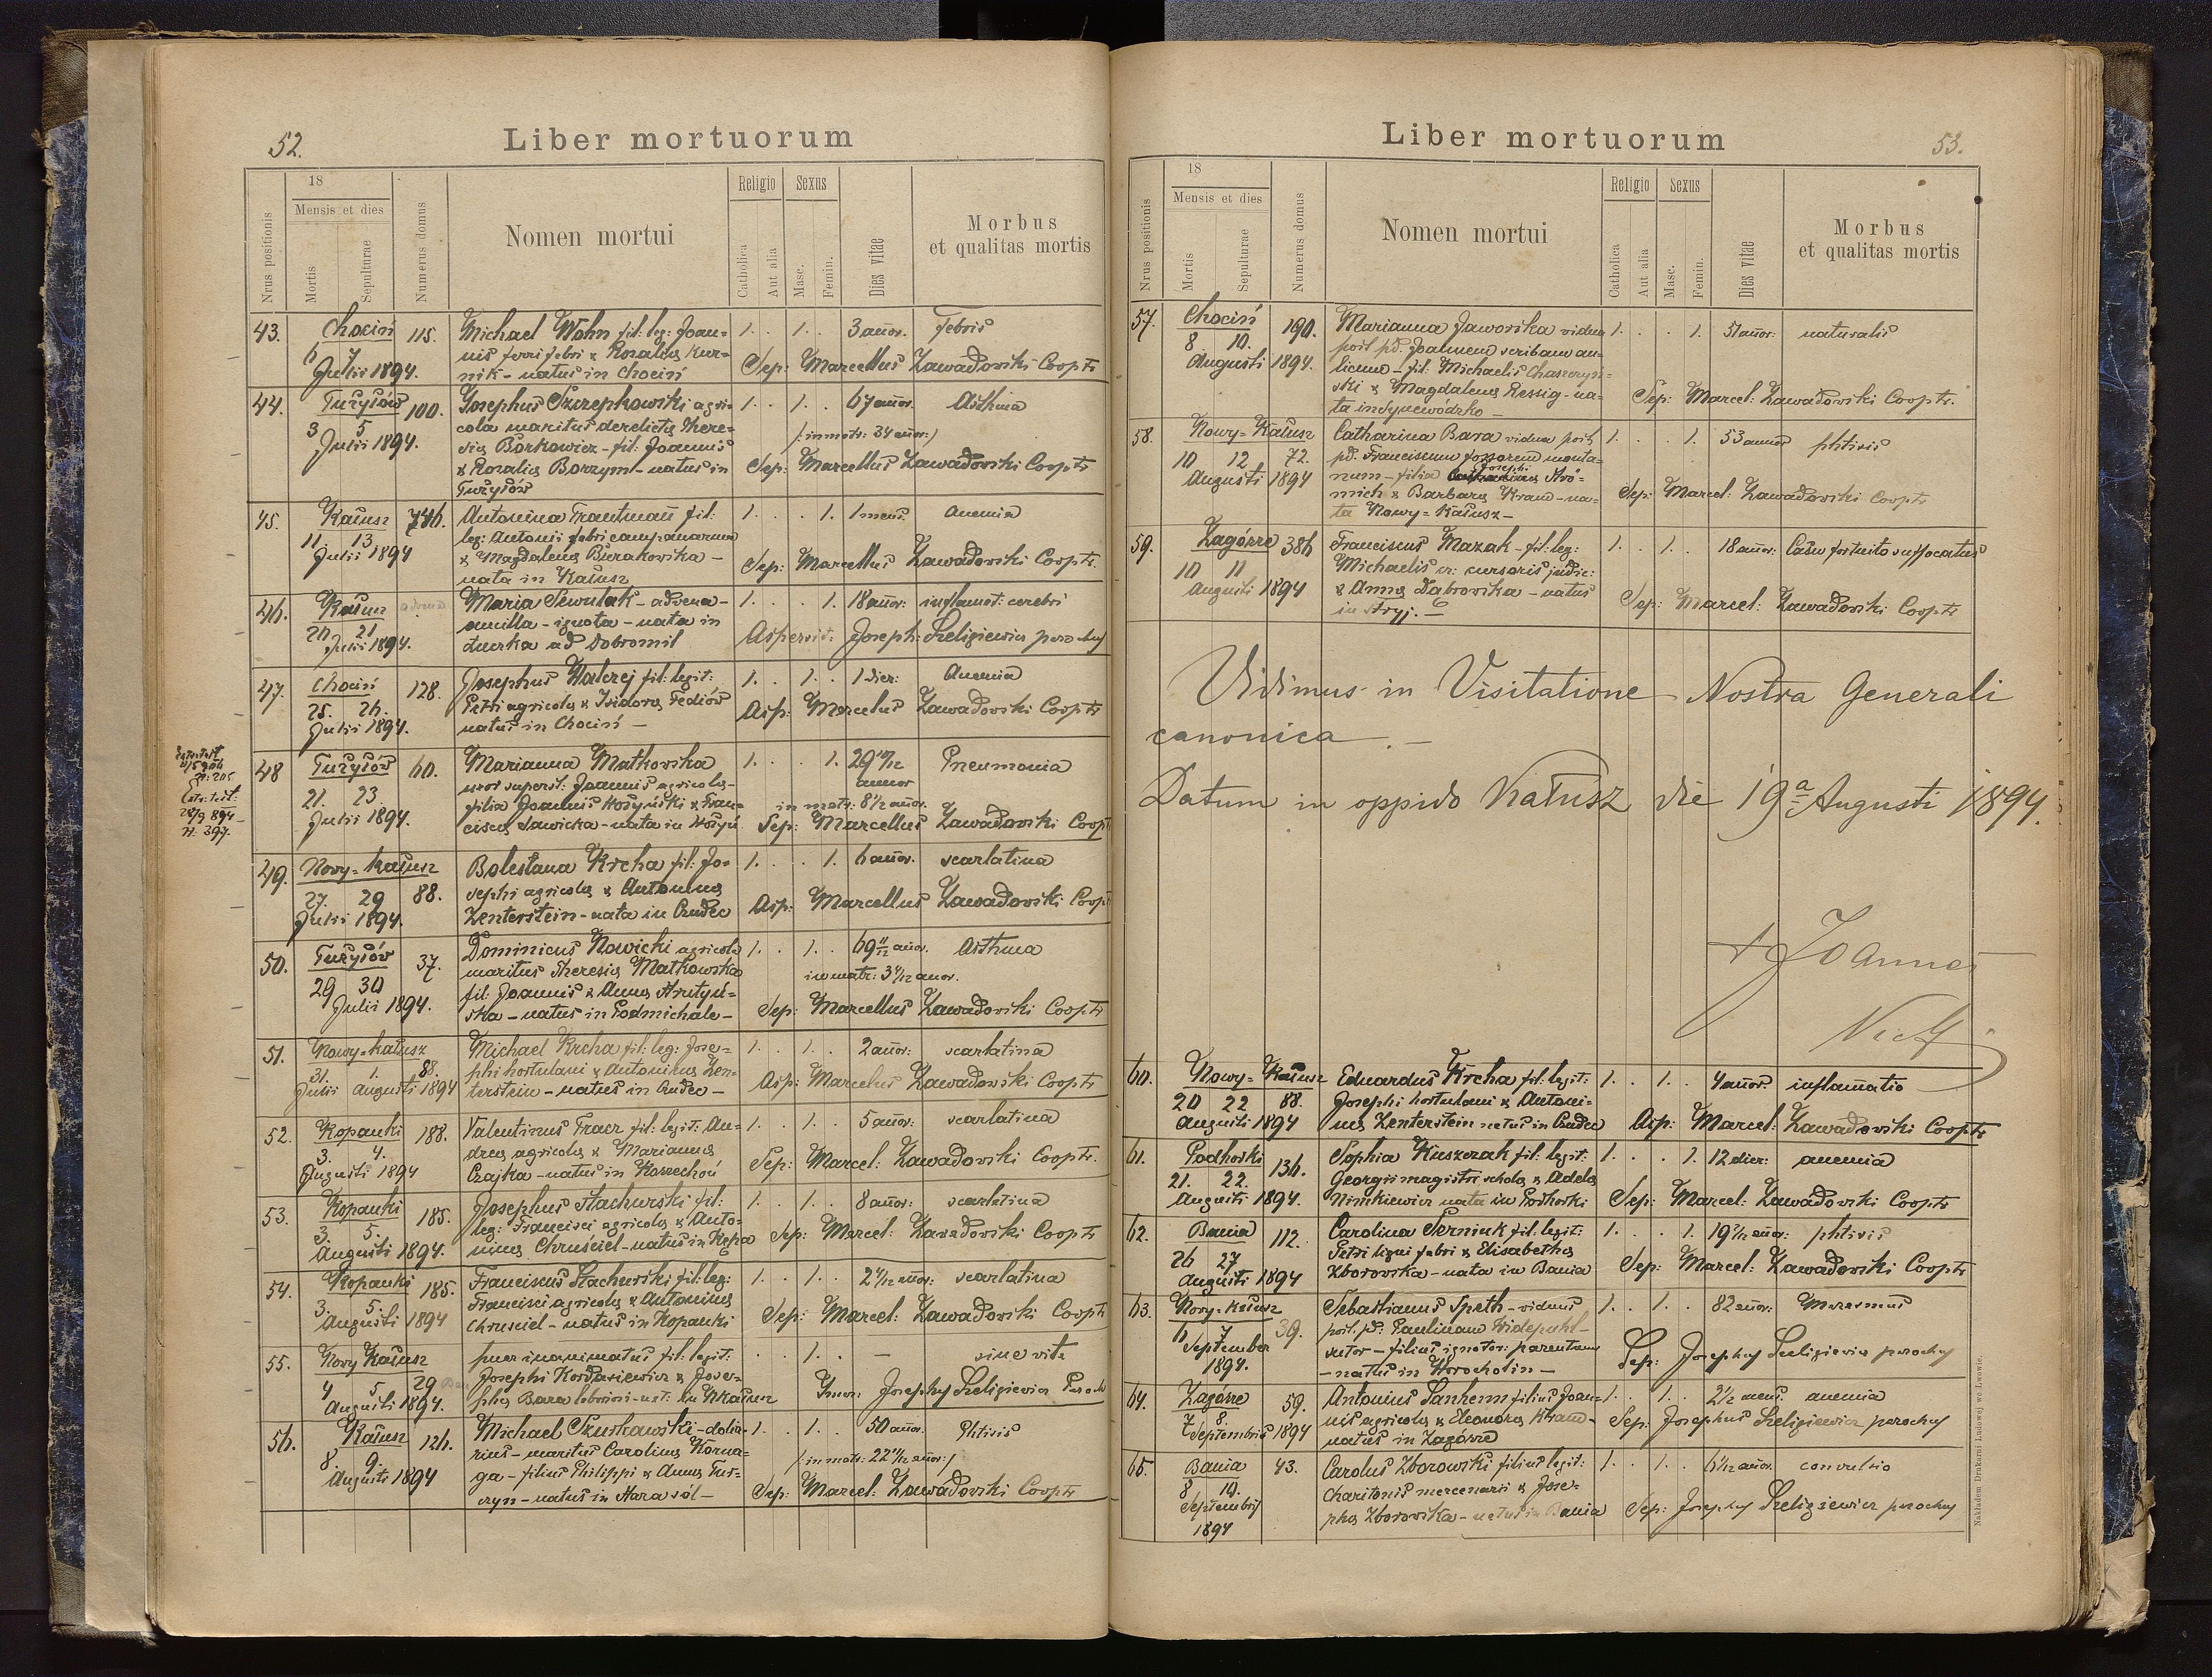 52.
Liber mortuorum
Nrus positionis
18
Mensis et dies
Mortis
Sepulturae
Numerus domus
Nomen mortui
Religio
Catholica
Aut alia
Sexus
Masc.
Femin.
Dies vitae
Morbus
et qualitas mortis
43. Chocin 115. Michael Wohn fil: leg: Joan= 1. 1. 3 anor. Febris
6 7 nis ferri fabri & Rosaliae Kur=
Julii 1894. nik - natus in Chocin Sep: Marcellus Zawadowski Coopr
44. Tużyłów 100. Josephus Szczepkowski agri= 1. 1. 67 anor. Asthma
3 5 cola maritus derelictus There=
Julii 1894. siae Borkowicz - fil: Joannis (in matr: 34 anor:)
& Rozalia Borzym - natus in Sep: Marcellus Zawadowski Coopr
Tużyłów
45. Kałusz 746. Antonina Trautman fil: 1. 1. 1 mens. Anemia
11. 13 leg: Antonii fabri campanarum
Julii 1894 & Magdalena Burakowska - Sep: Marcellus Zawadowski Coopr.
nata in Kałusz
46. Kałusz Maria Sewulak - advena - 1. 1. 18 anor: inflamat: cerebri
20 21 ancilla - ignota - nata in
Julii 1894. ad Dobromil Joseph: Szeligiewicz parochus
47. Chocin 128. Josephus Walczej fil: legit: 1. 1. 1 dier: Anemia
25. 26. Petri agricolae & Isidora Fediów Asp: Marcelus Zawadowski Coopr
Julii 1894. natus in Chocin -
48 Tużyłów 60. Marianna Matkowska 1. 1. 29 10/12 Pneumonia
uxor superst. Joannis agricolae - annor
21. 23 filia Joannis & Fran= in matr: 8 1/2 anor.
Julii 1894. ciscae Sawicka - nata in Sep: Marcellus Zawadowski Coopr
N. 397.
49. Nowy-Kałusz Bolesłaua Krcha fil: Jo= 1. 1. 6 anor. scarlatina
27. 29 88. sephi agricolae & Antoninae
Julii 1894. Zenterstein - nata in Czudec Asp: Marcellus Zawadowski Coopr
50. Tużyłów 37. Dominicus Nowicki agricola 1. 1. 69 11/12 anor. Asthma
maritus Theresiae Matkowska in matr: anor.
29 30 fil: Joannis & Anna
Julii 1894. ska - natus in Podmichale - Sep: Marcellus Zawadowski Coopr
51. Nowy-Kałusz Michael Krcha fil: leg: Jose= 1. 1. 2 anor: scarlatina
31. 1. 88. phi hortulani & Antoninae Zen=
Julii Augusti 1894 terstein - natus in Czudec - Asp: Marcelus Zawadowski Coopr
52. Kopanki 188. Valentinus Tracz fil: legit: An= 1. 1. 5 anor: scarlatina
3. 4. dreae agricolae & Marianna
Augusti 1894 Czajka - natus in Sep: Marcel: Zawadowski Coopr.
53. Kopanki 185. Josephus Stachurski fil: 1. 1. 8 anor: scarlatina
3. 5. leg: Francisci agricolae & Anto=
Augusti 1894. nina Chruściel - natus in Kępa Sep: Marcel: Zawadowski Coopr
54. Kopanki 185. Franciscus Stachurski fil: leg: 1. 1. scarlatina
3. 5. Francisci agricolae & Antonina
Augusti 1894 Chrusciel - natus in Kopanki Sep: Marcel: Zawadowski Coopr
55. Nowy Kałusz puer inanimatus fil: legit: 1. - sine vita
4 5 29 Josephi Kordasiewicz & Jose=
Augusti 1894. pha Bara Josephus Szeligiewicz
56. Kałusz 126. Michael Szustkowski - dolia= 1. 1. 50 anor. Phtisis
8 9. rius - maritus Carolina Korna= (in matr: 22 anor:)
Augusti 1894 ga - filius Philippi & Anna Tur=
czyn - natus in Starasól - Sep: Marcel: Zawadowski Coopr
Liber mortuorum
53.
Nrus positionis
18
Mensis et dies
Mortis
Sepulturae
Numerus domus
Nomen mortui
Religio
Catholica
Aut alia
Sexus
Masc.
Femin.
Dies vitae
Morbus
et qualitas mortis
57. Chocin 190. Marianna Jaworska vidua 1. 1. 51 anor: naturalis
8 10. post pd. Joannem scribam au=
Augusti 1894. licum - fil: Michaelis
ski & Magdalena Ressig - na= Sep: Marcel: Zawadowski Coopr.
ta in
58. Nowy-Kałusz Catharina Bara vidua post 1. 1. 53 annor phtisis
10 12 72. pd. Franciscum fossorem monta=
Augusti 1894 num - filia Josephi
mich & Barbara Kraus - na= Sep: Marcel: Zawadowski Coopr
ta Nowy-Kałusz -
59. Zagórze 386 Franciscus Mazak - fil: leg: 1. 1. 18 anor: Casu fortuito suffocatus
10 11 Michaelis cursoris judic:
Augusti 1894 & Anna Dabrowska - natus Sep: Marcel: Zawadowski Coopr
in Stryj. -
Vidimus in Visitatione Nostra Generali
canonica. -
Datum in oppido Kałusz die 19a Augusti 1894.
+ Joannes
60. Nowy-Kałusz Eduardus Krcha fil: legit: 1. 1. 4 anor. inflamatio
20 22 88. Josephi hortulani & Antoni=
Augusti 1894 nae Zenterstein natus in Czudec Asp: Marcel: Zawadowski Coopr
61. Podhorki 136. Sophia Kuszczak fil: legit: 1. 1. 12 dier: anemia
21. 22. Georgii magistri scholae & Adela
Augusti 1894. nata in Podhorki Sep: Marcel: Zawadowski Coopr
62. Bania 112. Carolina Serniuk fil: legit: 1. 1. phtisis
26 27 Petri ligni fabri & Elisabetha
Augusti 1894 Zborowska - nata in Bania Sep: Marcel: Zawadowski Coopr
63. Nowy-Kałusz Sebastianus Speth - viduus 1. 1. 82 anor: Marasmus
6 7 39. post. pd: Paulinam
September sutor - filius ignotor: parentum Sep: Josephus Szeligiewicz parochus
1894. - natus in Horocholin -
64. Zagórze 59. Antonius Sanhenn filius Joan= 1. 1. 2 1/2 mens. anemia
7 8. nis agricolae & Eleonora Sep: Josephus Szeligiewicz parochus
Septembris 1894 natus in Zagórze
65. Bania 43. Carolus Zborowski filius legit: 1. 1. convulsio
8 10. Charitonis mercenarii & Jose=
Septembris pha Zborowska - natus in Bania Sep: Josephus Szeligiewicz parochus
1894
Nakładem Drukarni Ludowej we Lwowie.